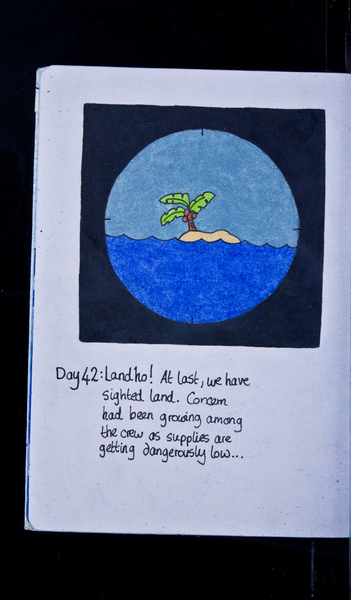 Day 42: Land ho! At last, we have
sighted land. Concern
had been growing among
the crew as supplies are
getting dangerously low...